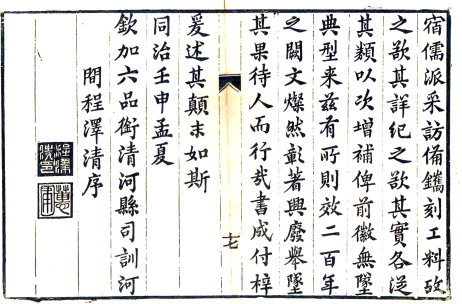 宿儒派采訪備鐫刻工料攷
之欲其詳紀之欲其實各從
其類以次增補俾前徽無墜
典型来兹有所則效二百年
之闕文燦然彰著興廢舉墜
其果待人而行哉書成付梓
爰述其顛末如斯
同治壬申孟夏
欽加六品銜清河縣司訓河
間程澤清序
十七